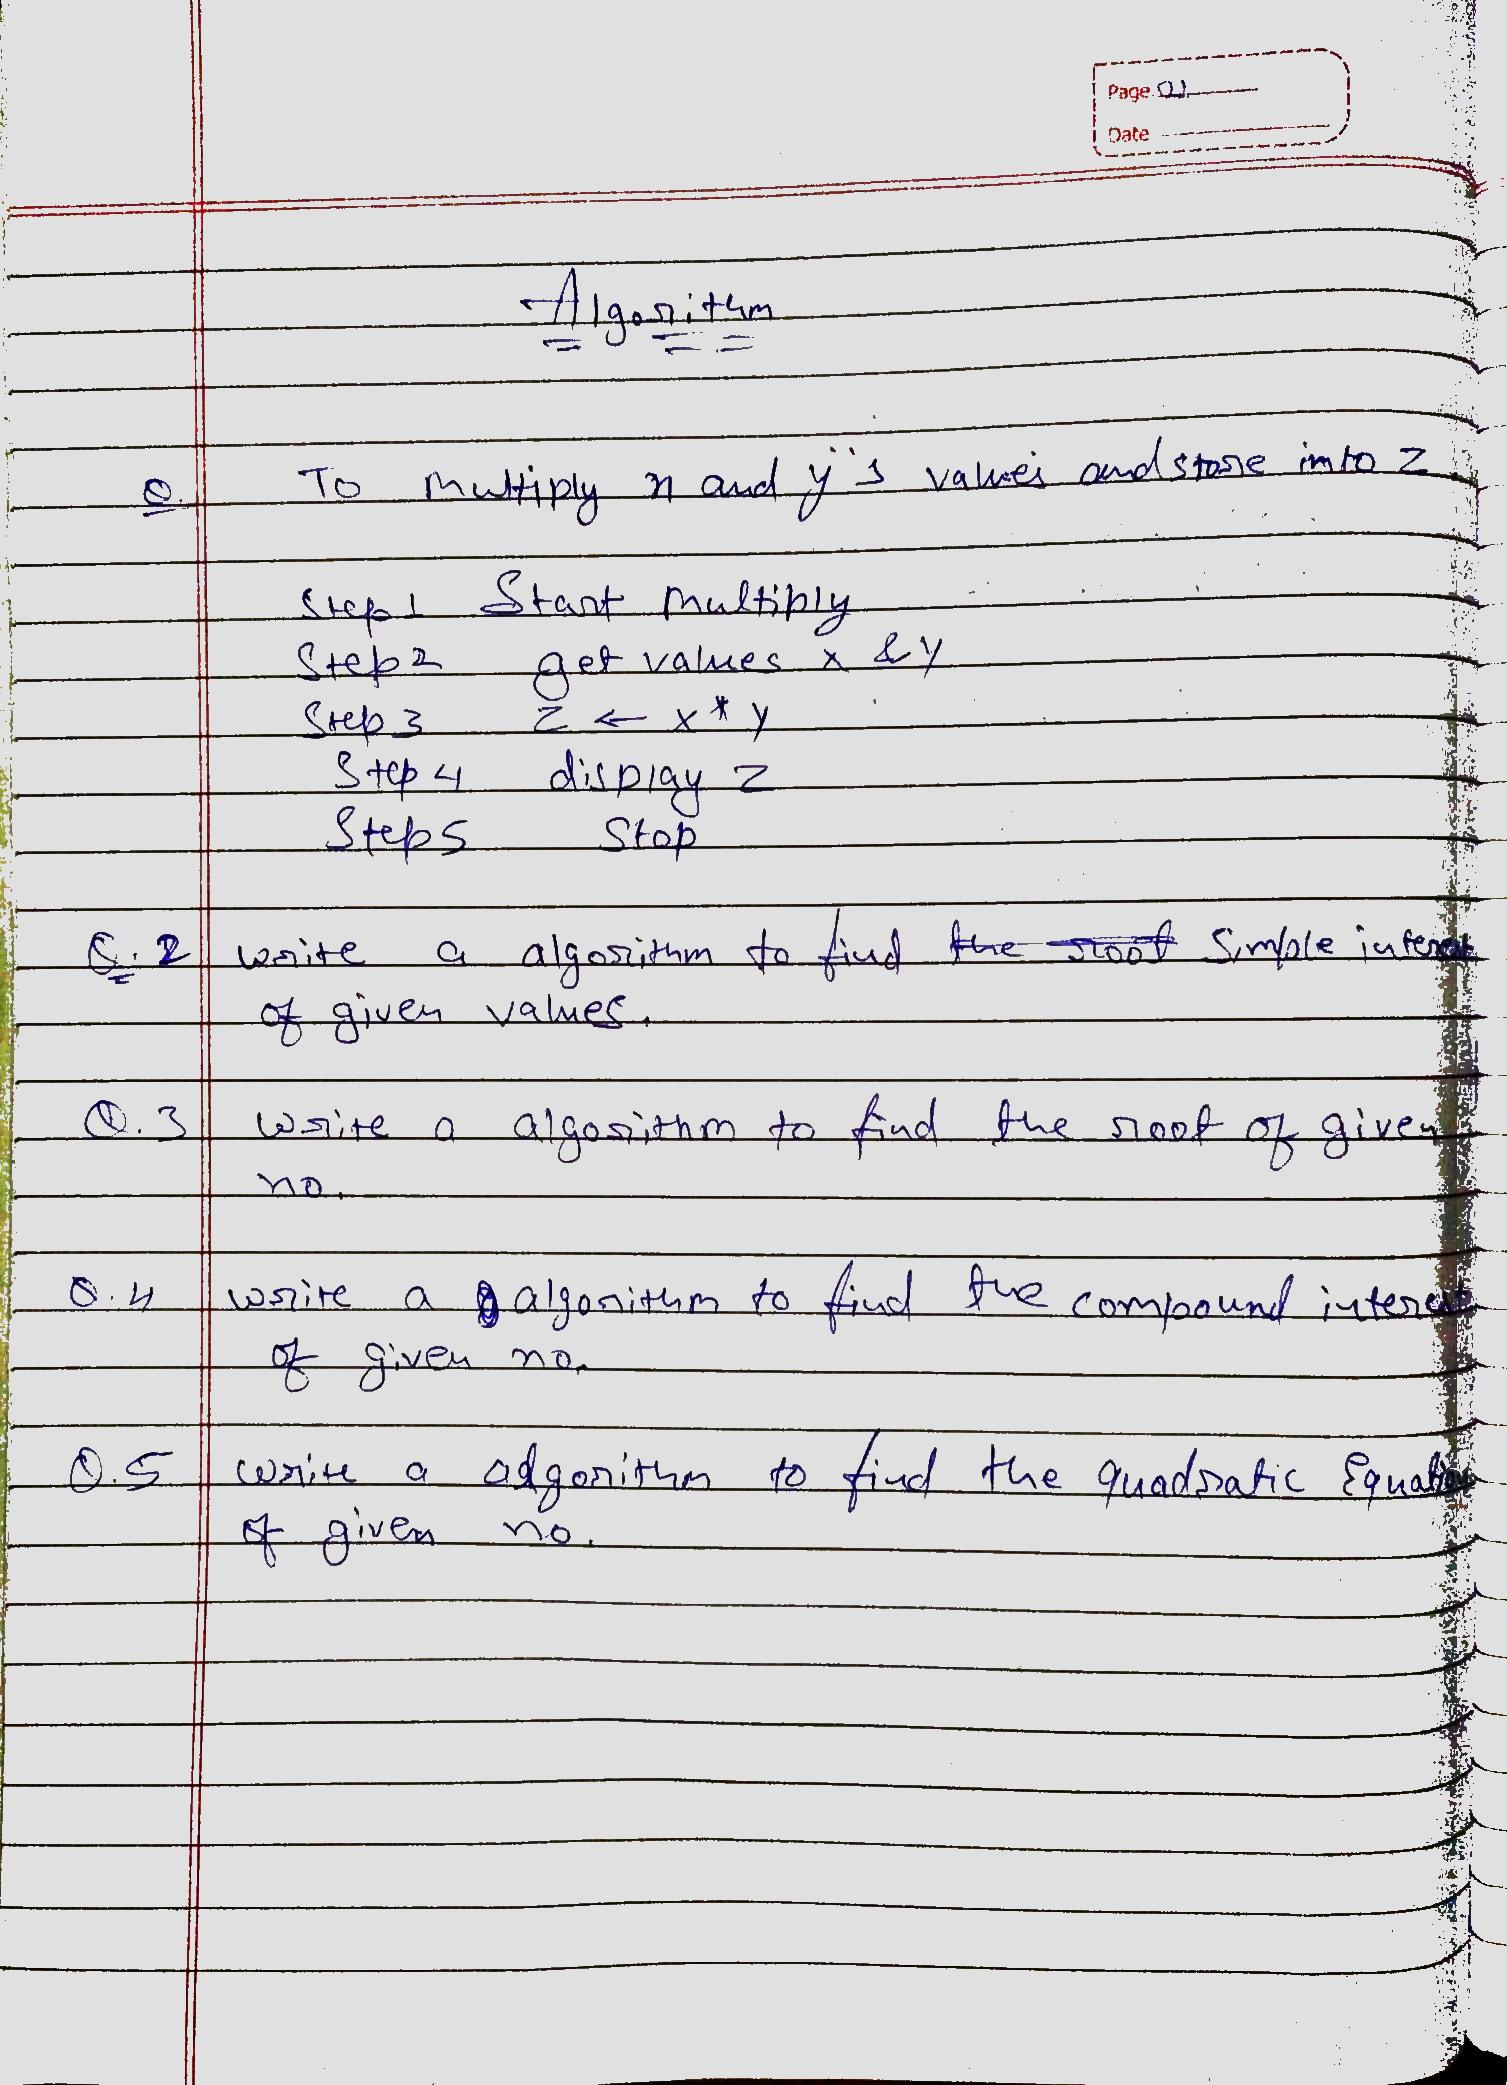 Page 01
Date
Algorithm
Q. To multiply x and y's values and store into z
Step 1 Start multiply
Step 2 get values x & y
Step 3 z ← x * y
Step 4 display z
Step 5 Stop
Q.2 write a algorithm to find the root simple interest
of given values.
Q.3 write a algorithm to find the root of given
no.
Q.4 write a algorithm to find the compound interest
of given no.
Q.5 write a algorithm to find the quadratic Equation
of given no.